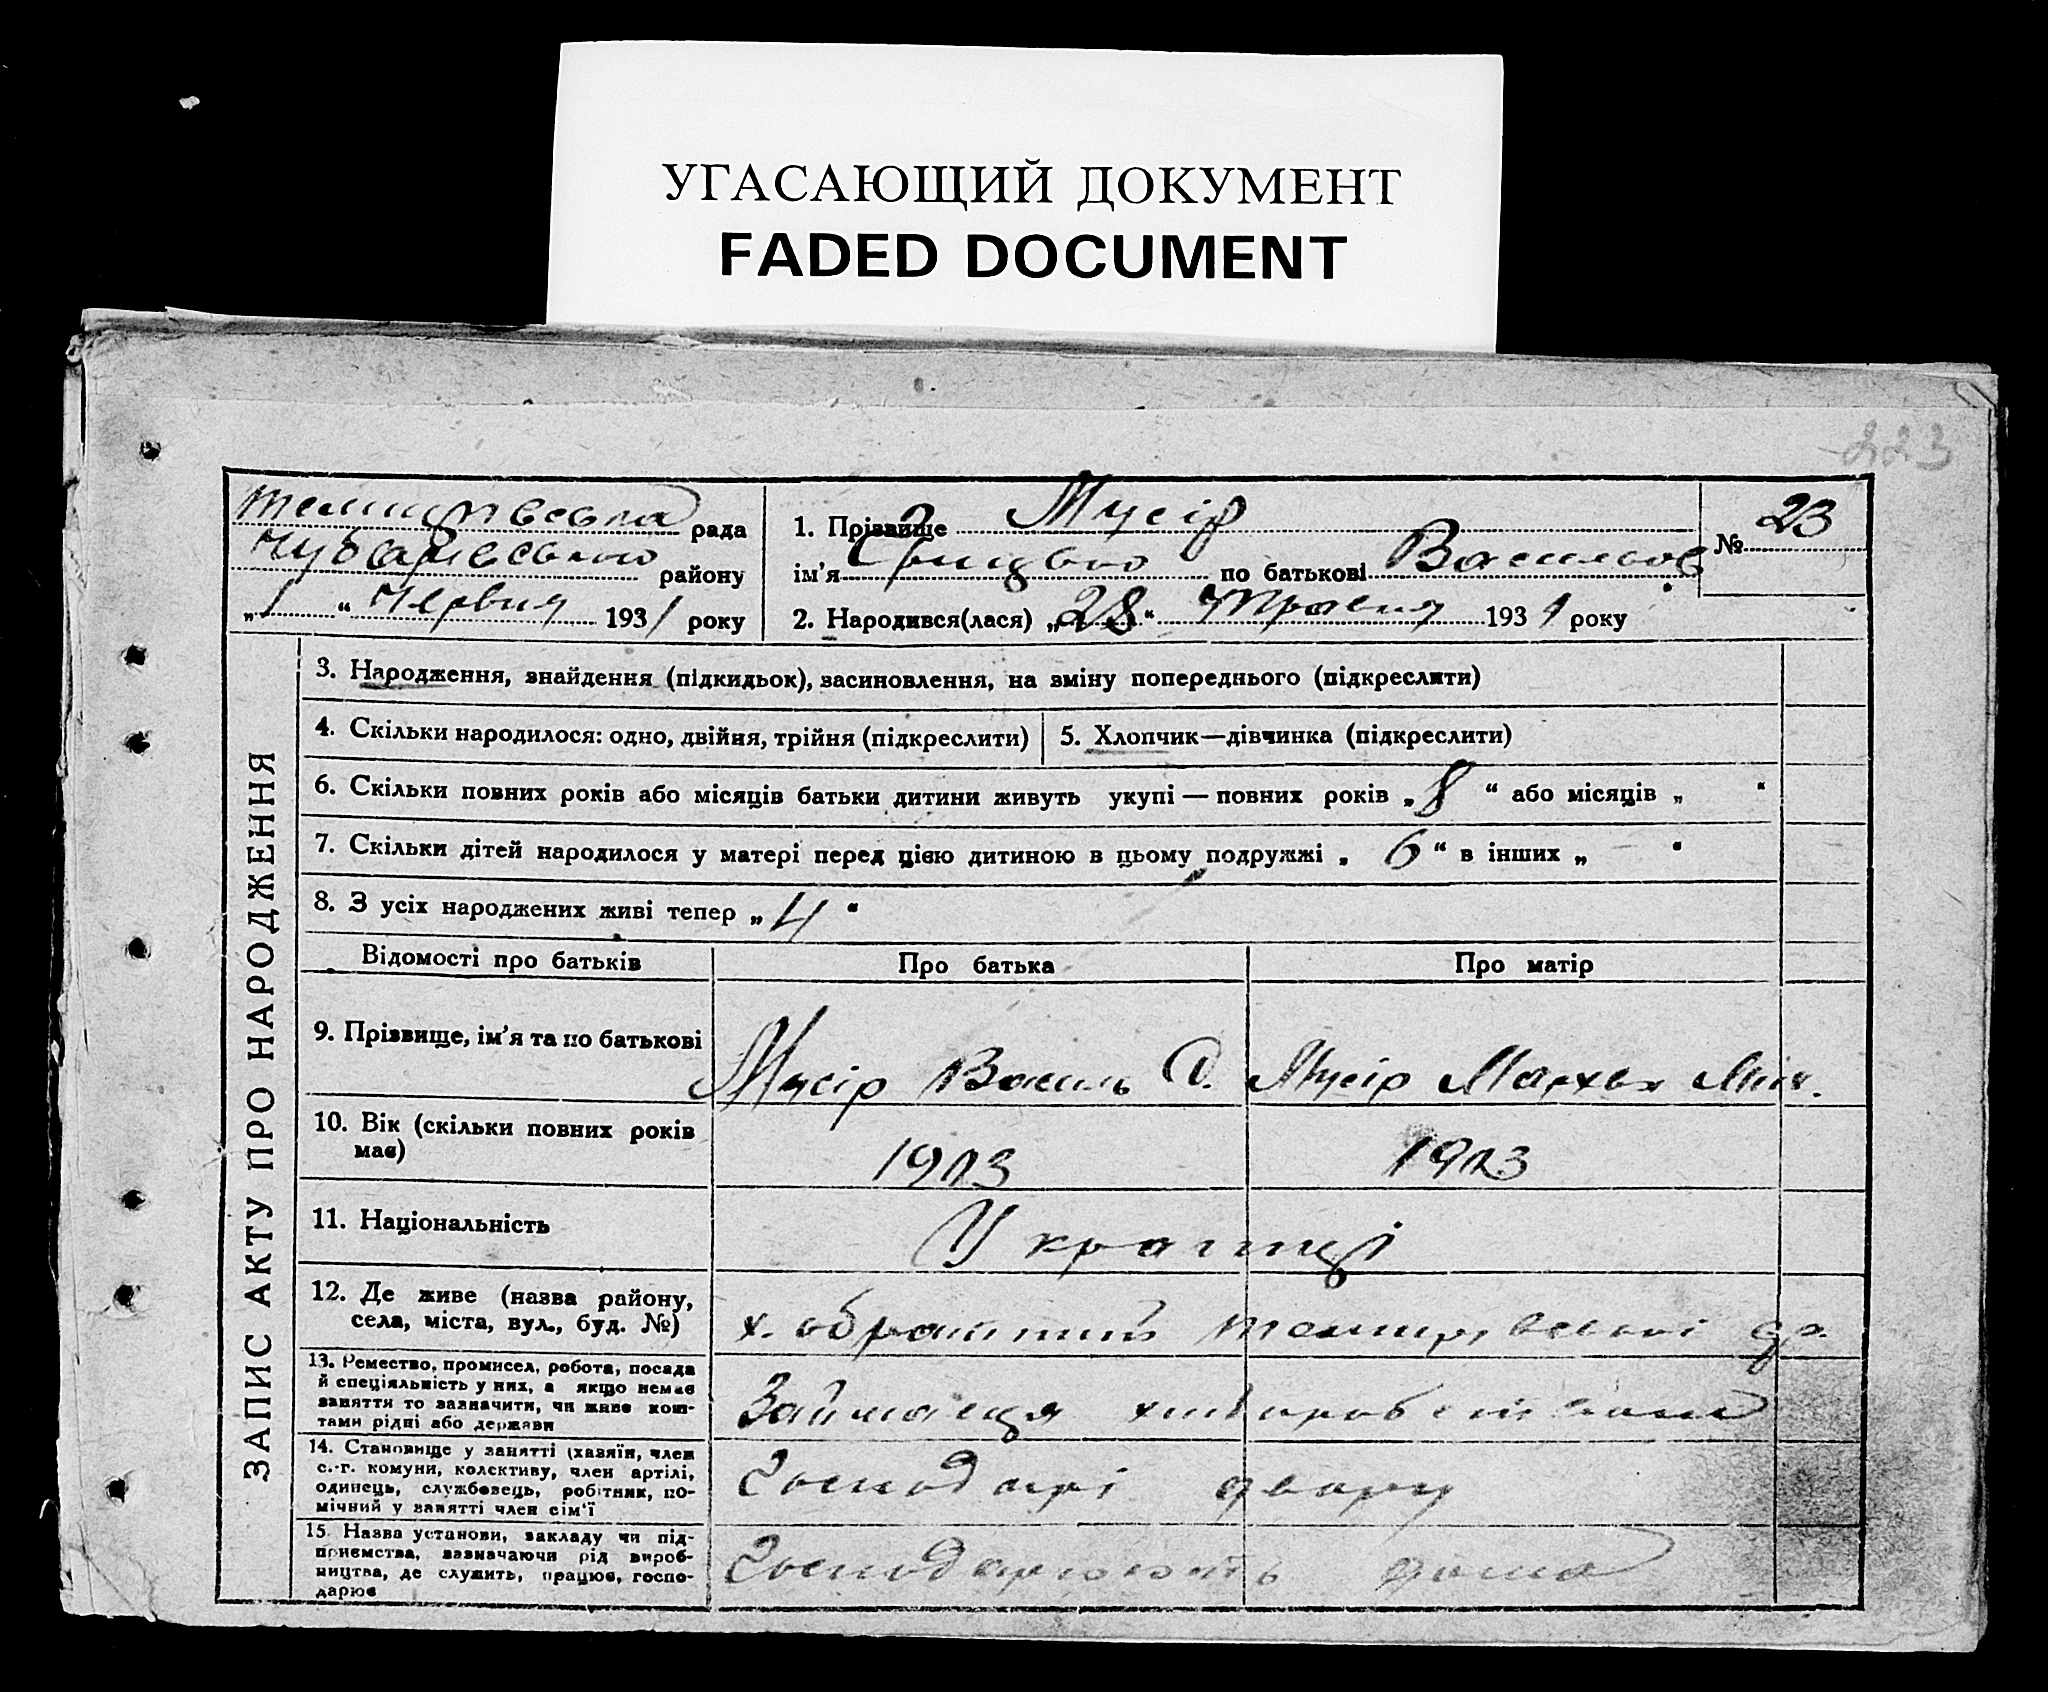 УГАСАЮЩИЙ ДОКУМЕНТ
FADED DOCUMENT
223
рада
Чубарівського району
„1“ Червня 1931 року
1. Прізвище Мусір
ім'я Грицько по батькові Васильов
2. Народився(лася) „28“ Травня 1931 року
№ 23
ЗАПИС АКТУ ПРО НАРОДЖЕННЯ
3. Народження, знайдення (підкидьок), засиновлення, на зміну попереднього (підкреслити)
4. Скільки народилося: одно, двійня, трійня (підкреслити)
5. Хлопчик—дівчинка (підкреслити)
6. Скільки повних років або місяців батьки дитини живуть укупі — повних років „8“ або місяців „ “
7. Скільки дітей народилося у матері перед цією дитиною в цьому подружжі „6“ в інших „ – “
8. З усіх народжених живі тепер „4“
Відомості про батьків
Про батька
Про матір
9. Прізвище, ім'я та по батькові
Мусір Василь
Мусір Мархва Мих.
10. Вік (скільки повних років
має)
1903
1903
11. Національність
Українці
12. Де живе (назва району,
села, міста, вул., буд. №)
х. обратний
13. Ремество, промисел, робота, посада
й спеціяльність у них, а якщо немає
заняття то зазначити, чи живе кош-
тами рідні або держави
Займаюця хліборобством
14. Становище у занятті (хазяїн, член
с.-г. комуни, колективу, член артілі,
одинець, службовець, робітник, по-
мічний у занятті член сім'ї
Господарі двору
15. Назва установи, закладу чи під-
приємства, зазначаючи рід вироб-
ництва, де служить, працює, госпо-
дарює
Господарюють дома